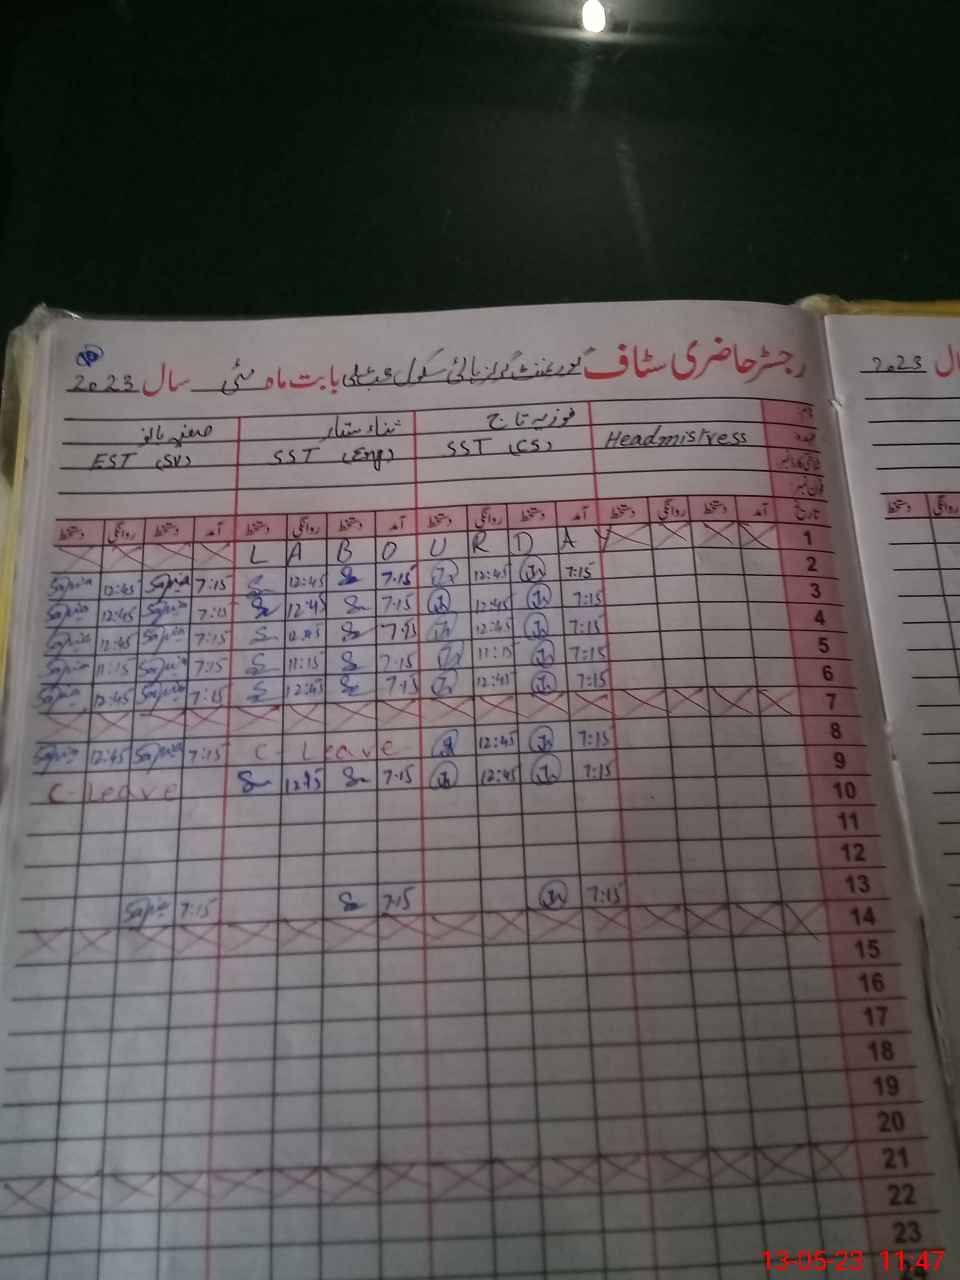 رجسٹر حاضری سٹاف گورنمنٹ گرلز ہائی سکول بابت ماہ مئی سال 2023
نام فوزیہ تاج ثناء ستار
عہدہ Headmistress SST (CS) SST (Eng) EST (SV)
شناختی کارڈ نمبر
فون نمبر
تاریخ آمد دستخط روانگی دستخط آمد دستخط روانگی دستخط آمد دستخط روانگی دستخط آمد دستخط روانگی دستخط
1 L A B O U R D A Y
2 7:15 12:45 7:15 12:45 7:15 Safia 12:45 Safia
3 7:15 12:45 7:15 12:45 7:15 Safia 12:45 Safia
4 7:15 12:45 7:15 12:45 7:15 Safia 12:45 Safia
5 7:15 11:15 7:15 11:15 7:15 Safia 11:15 Safia
6 7:15 12:45 7:15 12:45 7:15 Safia 12:45 Safia
7
8 7:15 12:45 C-Leave 7:15 Safia 12:45 Safia
9 7:15 12:45 7:15 12:45 C-Leave
10
11
12
13 7:15 7:15 7:15 Safia
14
15
16
17
18
19
20
21
22
23
2023
سال
دستخط روانگی
13-05-23 11:47